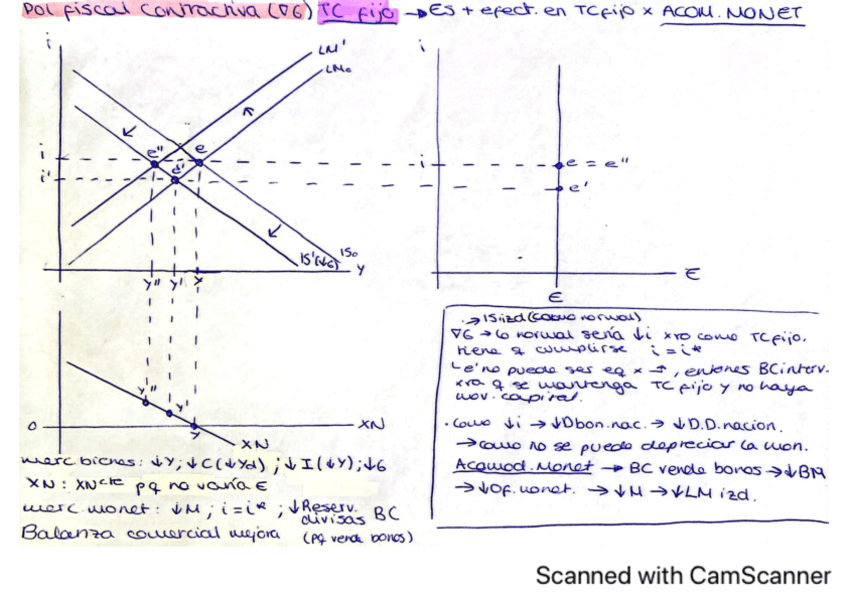 Pol fiscal contractiva (∇G) TC fijo → ES + efect. en TC fijo x ACOM. MONET
i
LM'
LM₀
e''
e
e'
i
i'
IS'(↓G)
IS₀
Y
Y'' Y' Y
i
i
e = e''
e'
E
E
y''
y'
y
0
XN
XN
merc bienes: ↓Y; ↓C(↓Yd) ; ↓I(↓Y); ↓G
XN: XNcte pq no varía E
merc monet: ↓M ; i=i* ; ↓Reserv. divisas BC
Balanza comercial mejora (pq vende bonos)
→ IS izd (como normal)
∇G → lo normal sería ↓i xro como TC fijo.
tiene q cumplirse i = i*
↳ e' no puede ser eq x →, entonces BC interv.
xra q se mantenga TC fijo y no haya
mov. capital.
· Como ↓i → ↓D bon. nac. → ↓D.D. nacion.
→ como no se puede depreciar la mon.
Acomod. Monet → BC vende bonos → ↓BM
→ ↓Of. monet. → ↓M → ↓LM izd.
Scanned with CamScanner